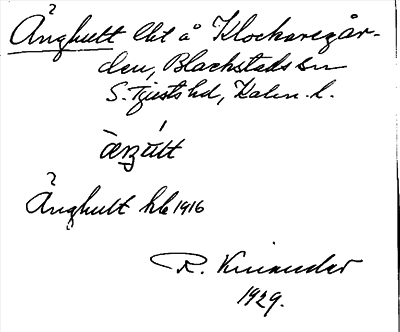 Änghult lht å Klockaregår-
den, Blackstads sn
S. Tjusts hd, Kalm. l.
Änghult hbl 1916
R. Kinander
1929.